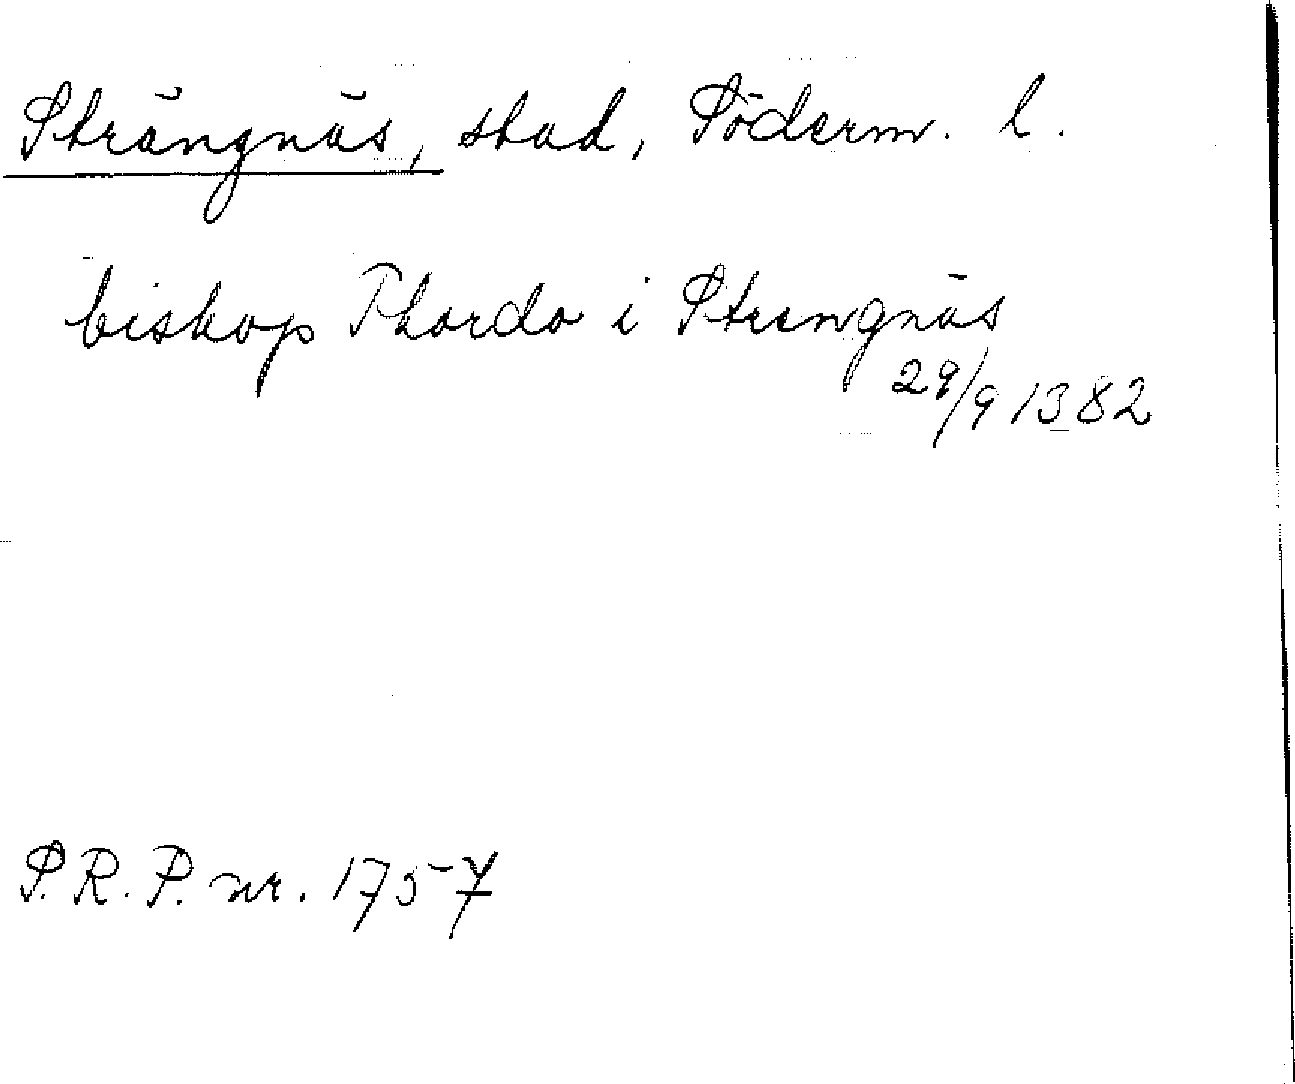 Strängnäs, stad, Söderm. l.
biskop Thordo i Strengnäs
29/9 1382
S.R.P. nr. 1757